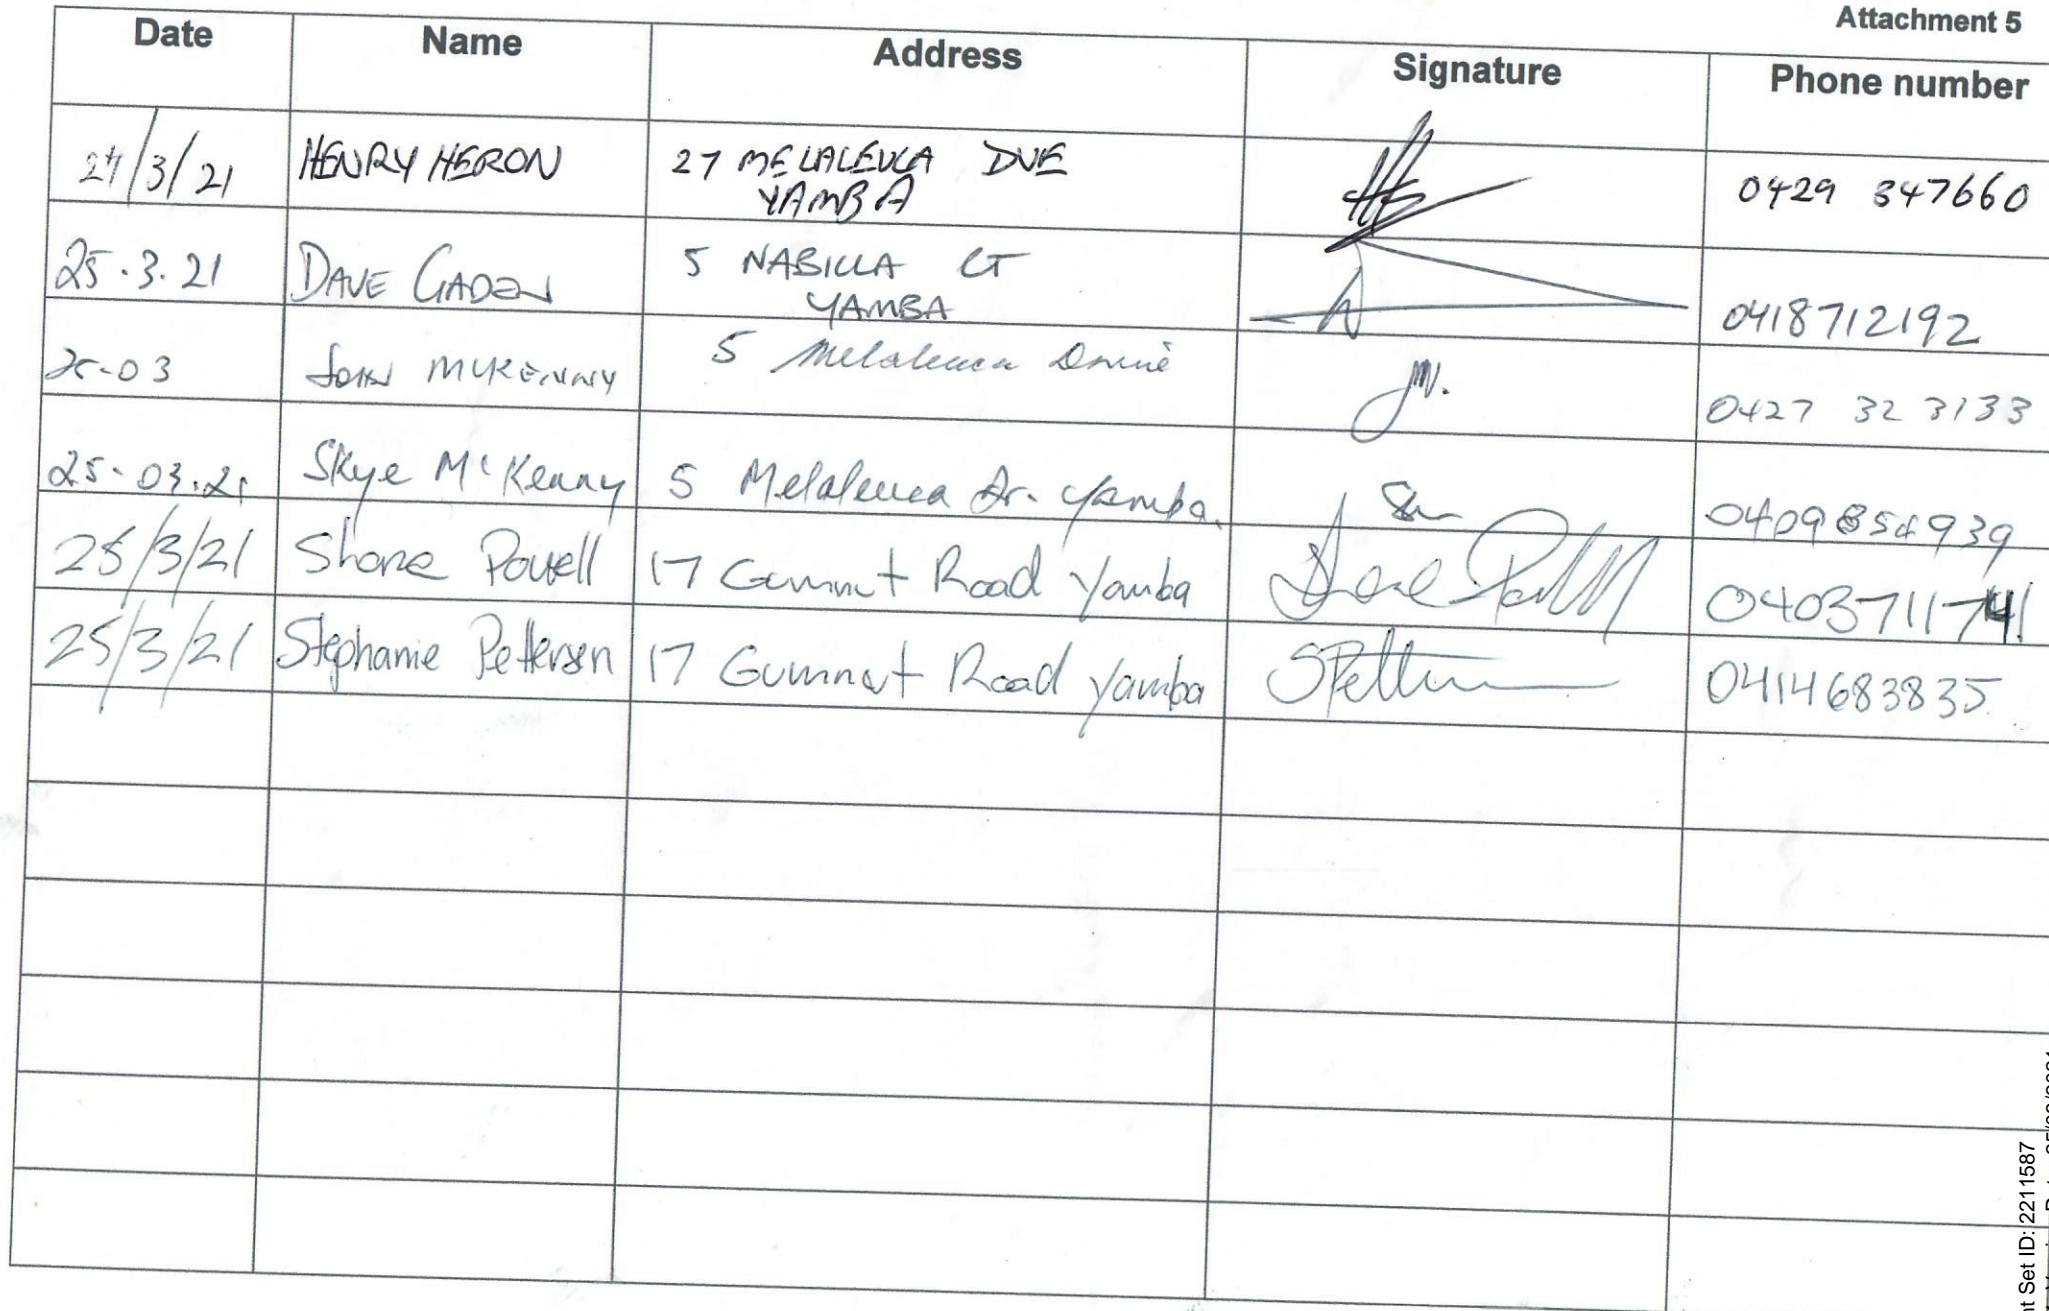 Attachment 5
Date Name Address Signature Phone number
24/3/21 HENRY HERON 27 MELALEUCA DVE 0429 347660
YAMBA
25.3.21 DAVE GADEN 5 NABILLA CT 0418712192
YAMBA
25-03 JOHN MCKENNY 5 Melaleuca Drive JM. 0427 32 3133
25-03.21 Skye McKenny 5 Melaleuca Dr. Yamba. 0409854939
25/3/21 Shane Powell 17 Gumnut Road Yamba Shane Powell 0403711741
25/3/21 Stephanie Petterson 17 Gumnut Road Yamba SPetterson 0414683835
nt Set ID: 2211587